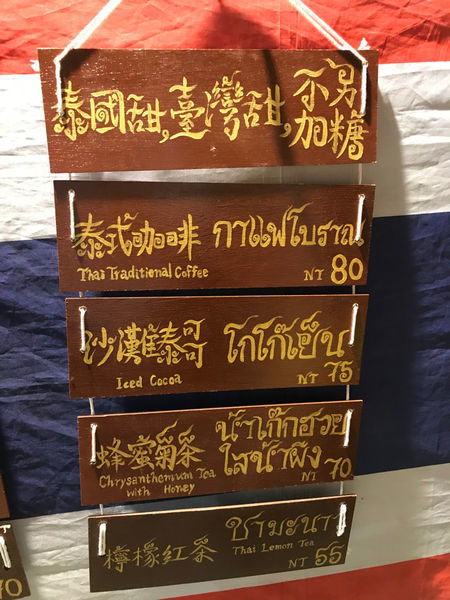 泰國甜,臺灣甜,不另加糖
泰式咖啡 กาแฟโบราณ
Thai Traditional Coffee NT 80
沙灘泰可可 โกโก้เย็น
Iced Cocoa NT 75
蜂蜜菊茶 น้ำเก๊กฮวย
ใส่น้ำผึ้ง
Chrysanthemum Tea
with Honey NT 70
檸檬紅茶 ชามะนาว
Thai Lemon Tea
NT 55
70